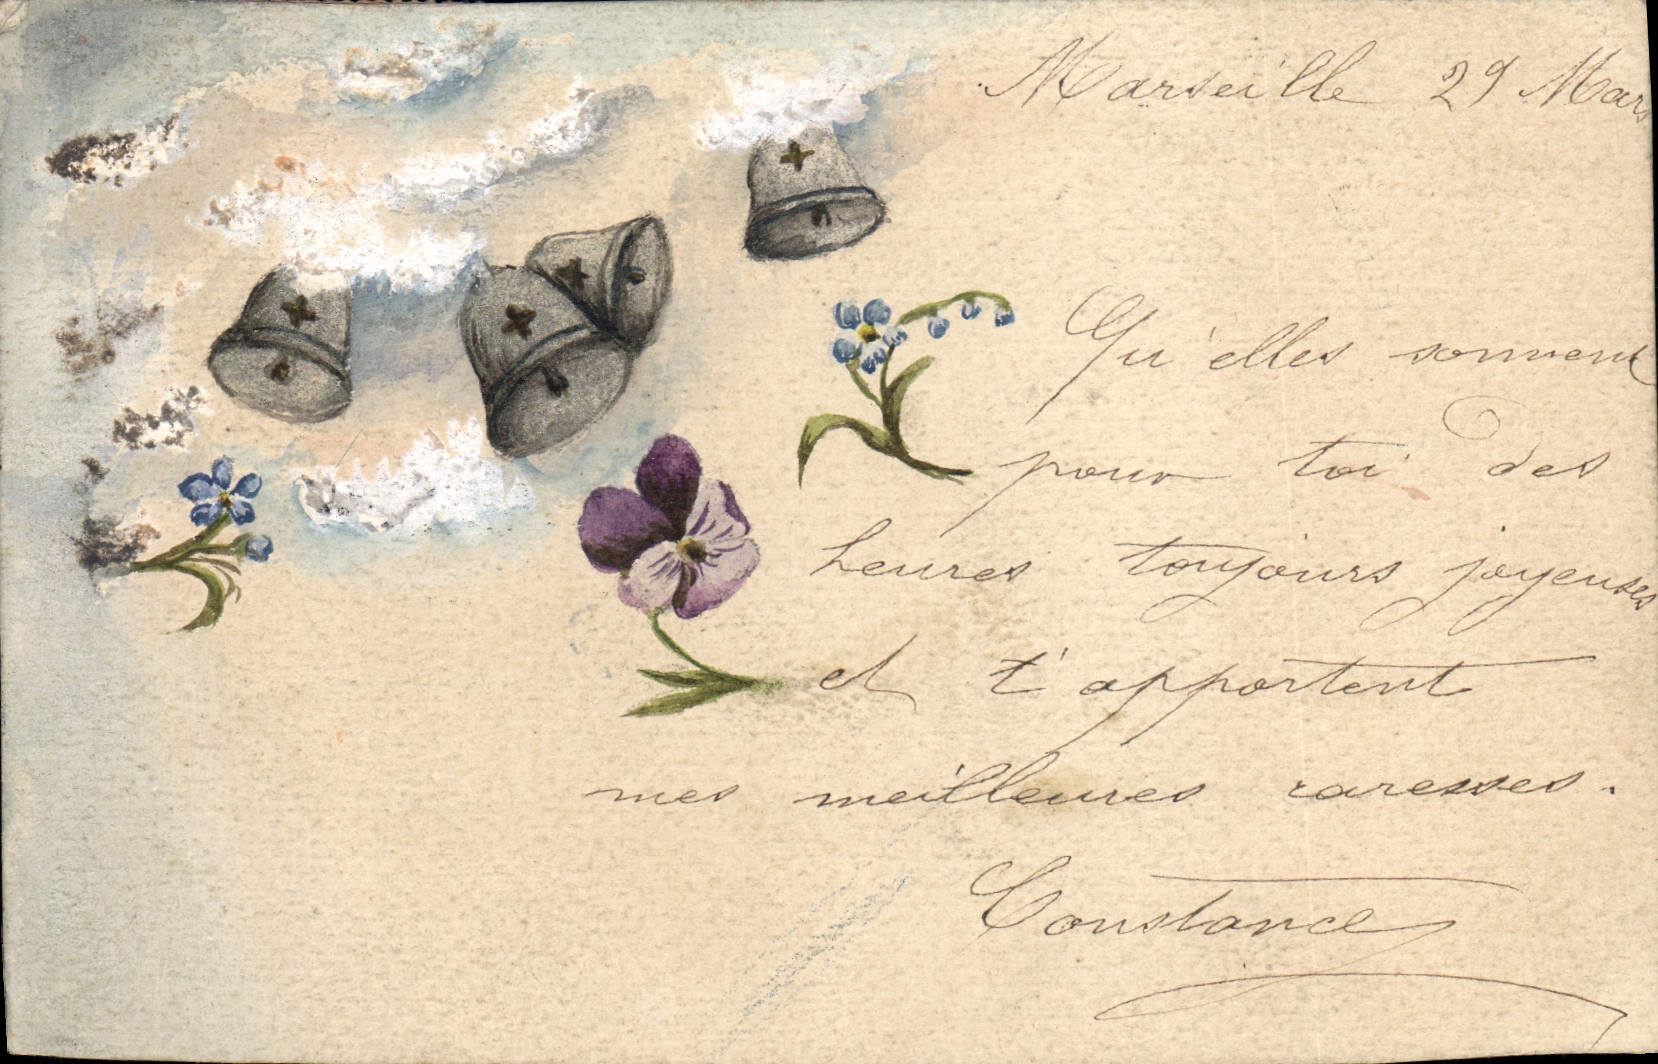 Marseille 29 Mars
Qu'elles sonnent
pour toi des
heures toujours joyeuses
et t'apportent
mes meilleures caresses.
Constance